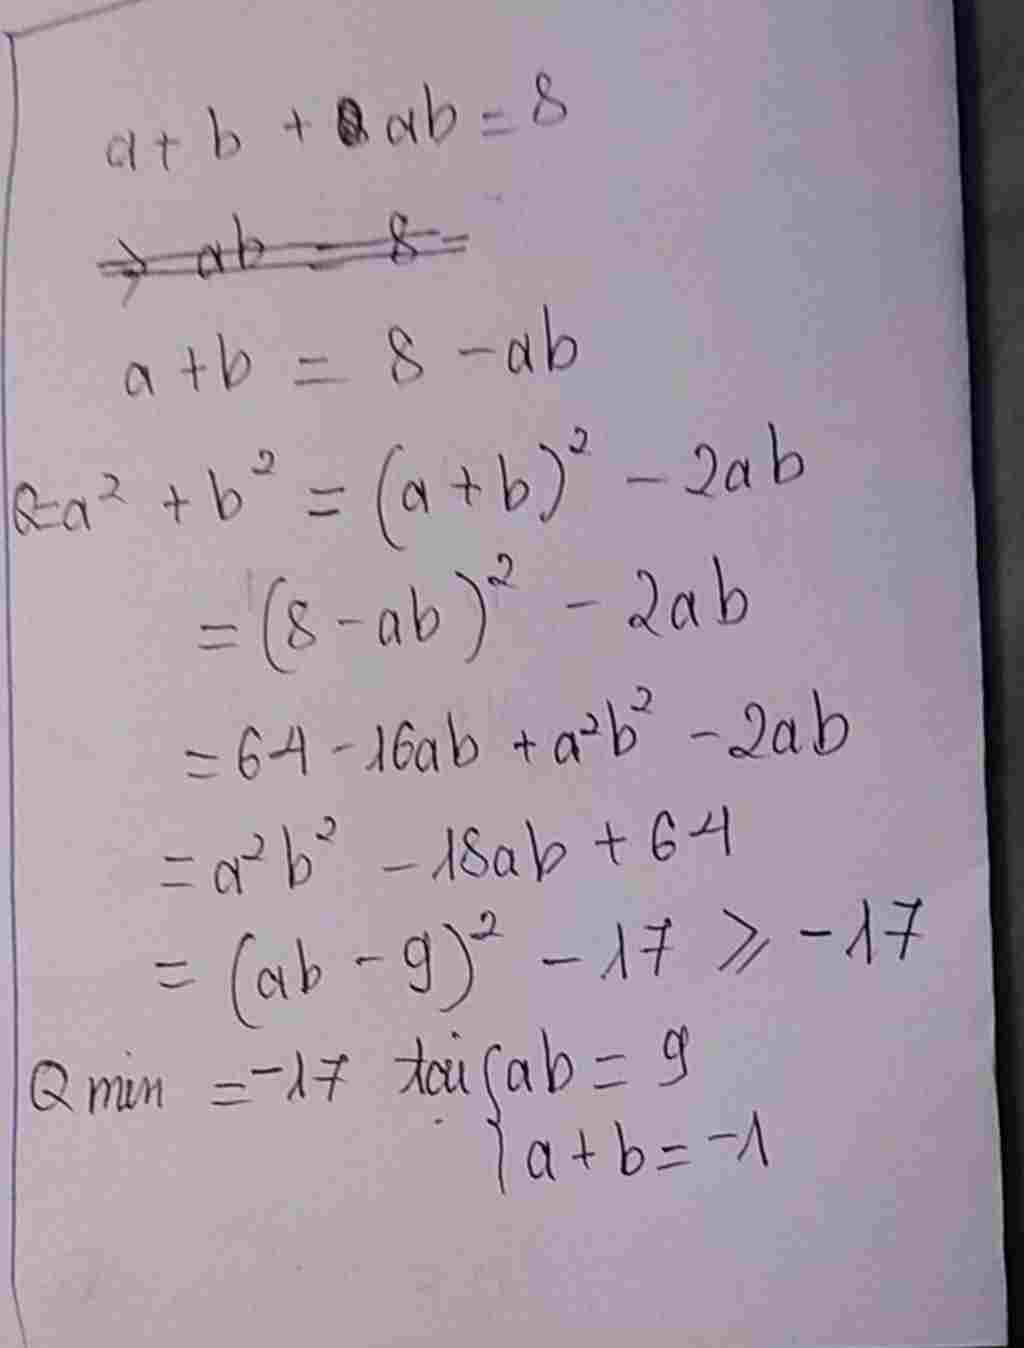 a + b + ab = 8
⇒ ab = 8 =
a + b = 8 - ab
Q = a² + b² = (a + b)² - 2ab
= (8 - ab)² - 2ab
= 64 - 16ab + a²b² - 2ab
= a²b² - 18ab + 64
= (ab - 9)² - 17 ⩾ -17
Q min = -17 tại { ab = 9
a + b = -1